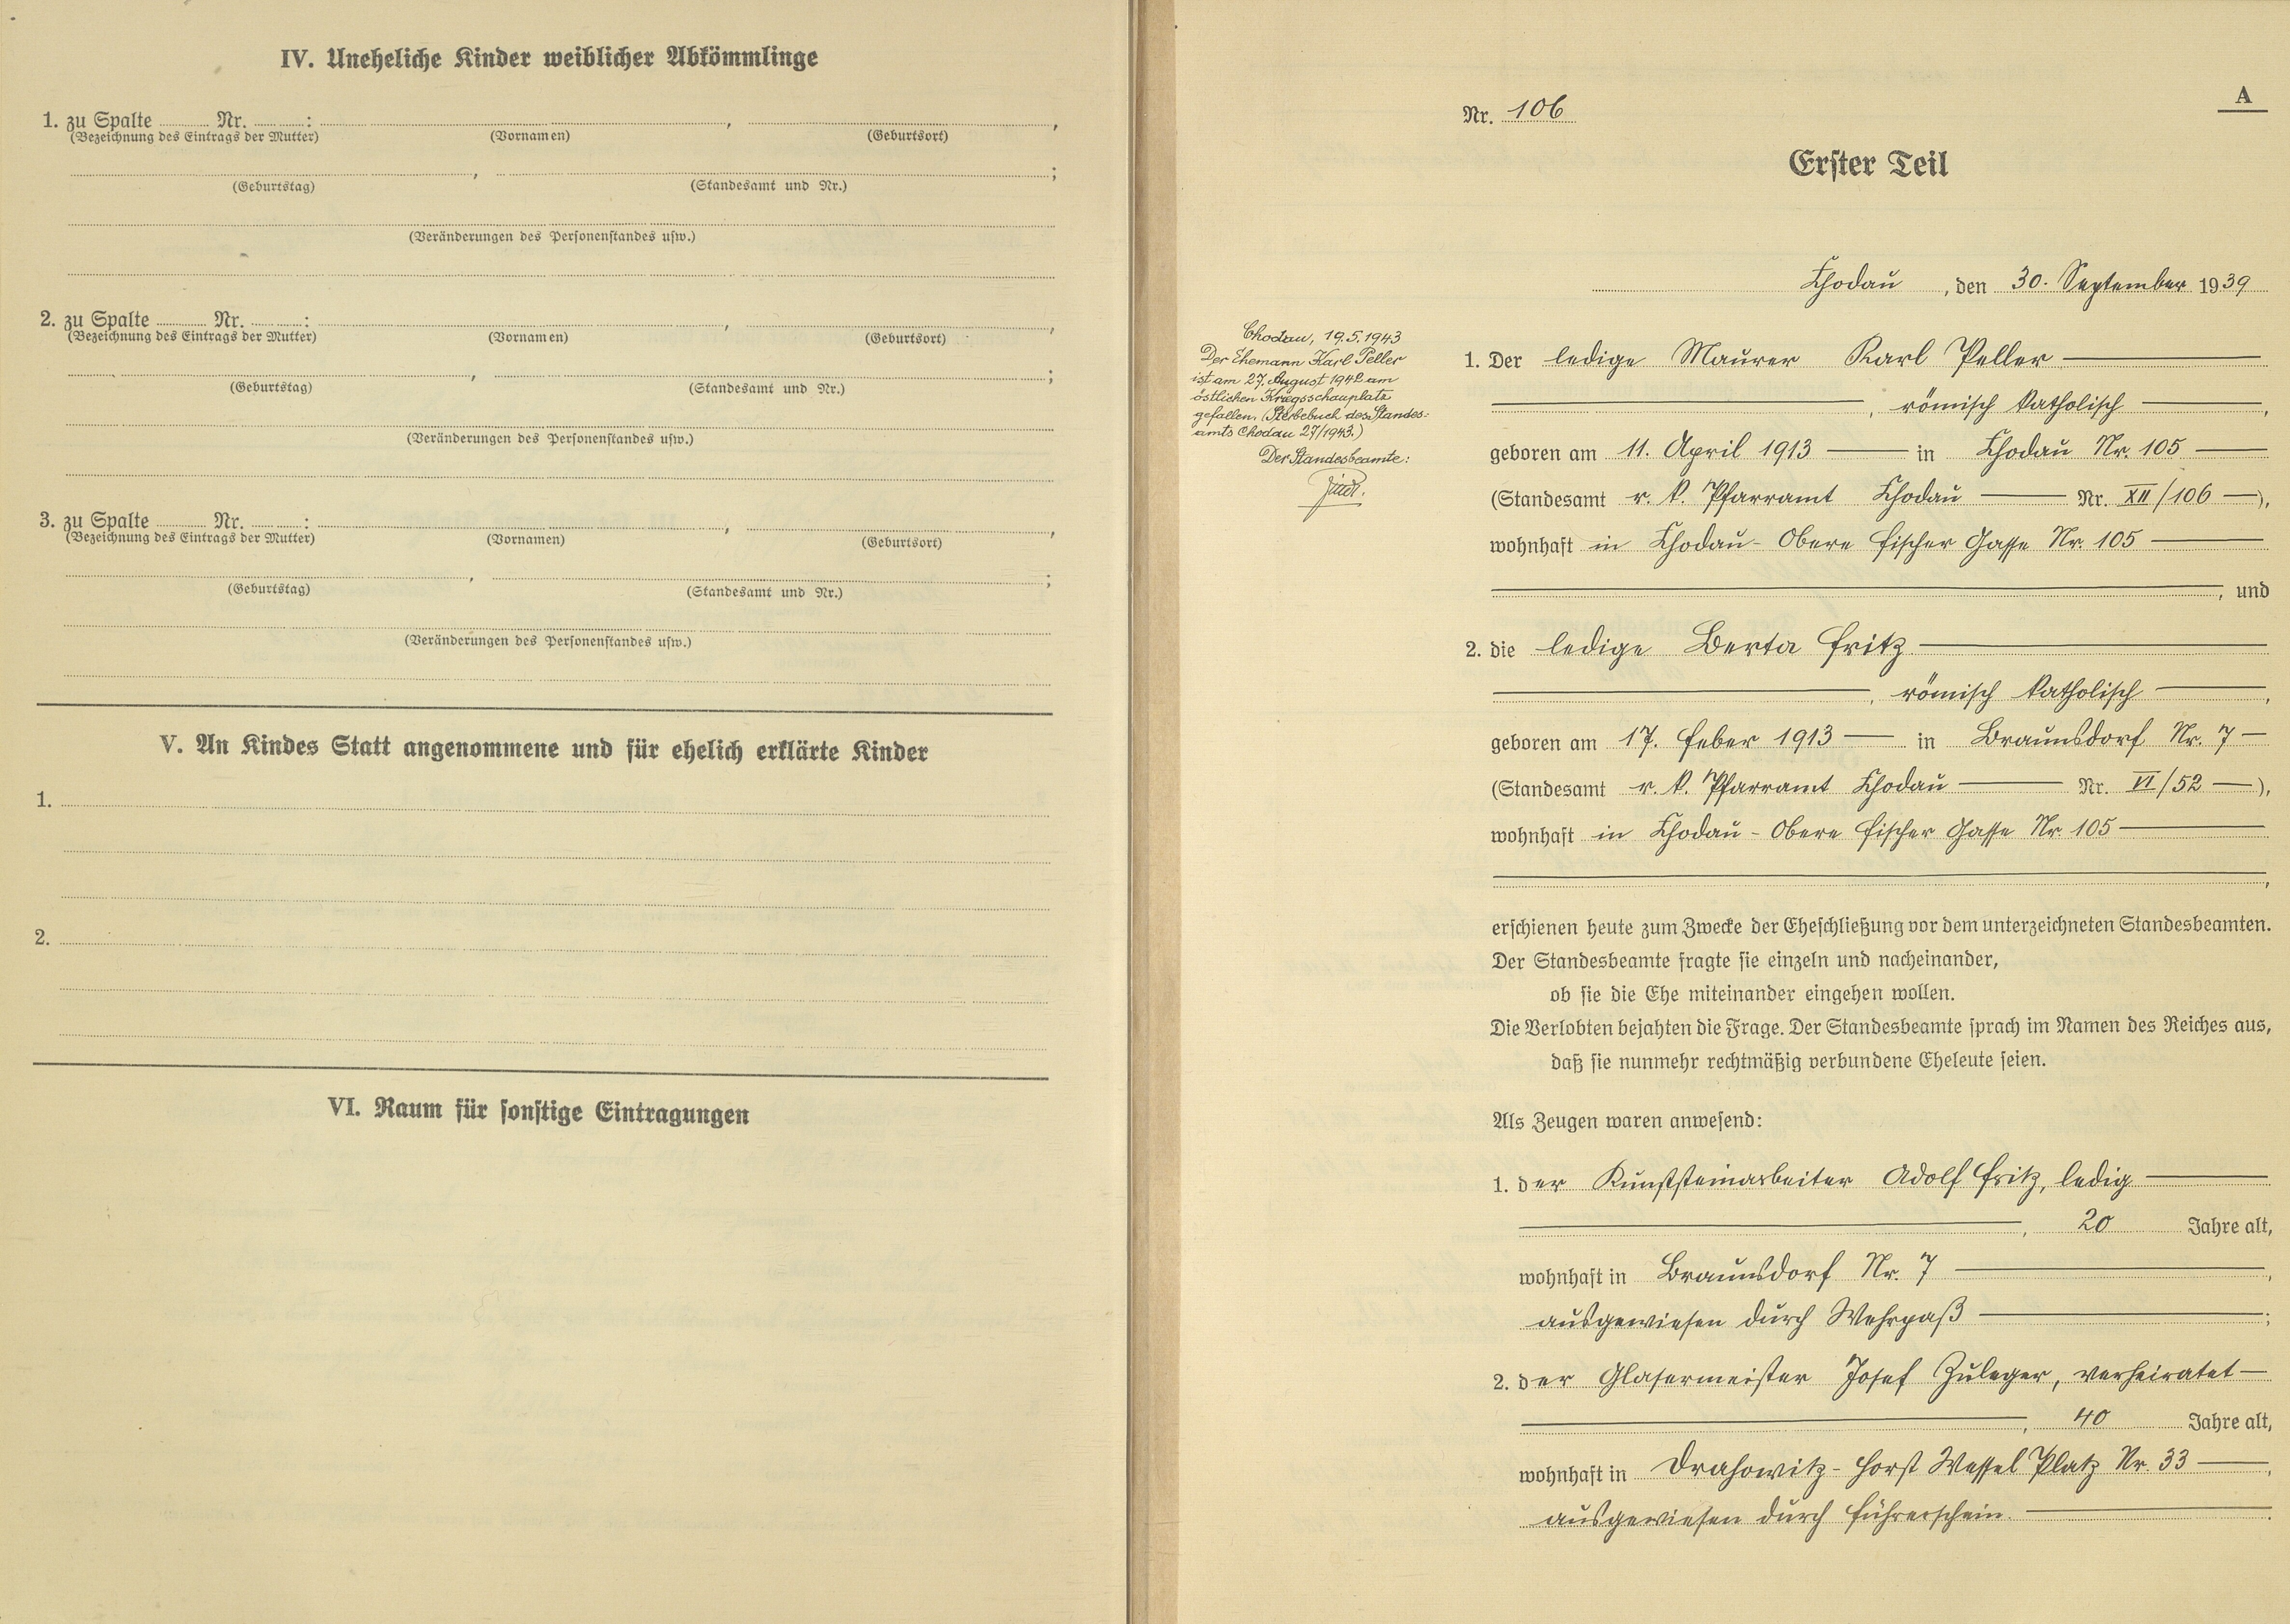 IV. Uneheliche Kinder weiblicher Abkömmlinge
1. zu Spalte ........ Nr. ........ : ........ , ........ ,
(Bezeichnung des Eintrags der Mutter) (Vornamen) (Geburtsort)
........ , ........ ;
(Geburtstag) (Standesamt und Nr.)
(Veränderungen des Personenstandes usw.)
2. zu Spalte ........ Nr. ........ : ........ , ........ ,
(Bezeichnung des Eintrags der Mutter) (Vornamen) (Geburtsort)
........ , ........ ;
(Geburtstag) (Standesamt und Nr.)
(Veränderungen des Personenstandes usw.)
3. zu Spalte ........ Nr. ........ : ........ , ........ ,
(Bezeichnung des Eintrags der Mutter) (Vornamen) (Geburtsort)
........ , ........ ;
(Geburtstag) (Standesamt und Nr.)
(Veränderungen des Personenstandes usw.)
V. An Kindes Statt angenommene und für ehelich erklärte Kinder
1.
2.
VI. Raum für sonstige Eintragungen
A
Nr. 106
Erster Teil
Chodau, den 30. September 1939
Chodau, 19.5.1943
Der Ehemann Karl Peller
ist am 27. August 1942 am
östlichen Kriegsschauplatz
gefallen. (Sterbebuch des Standes-
amts Chodau 27/1943.)
Der Standesbeamte:
1. Der ledige Maurer Karl Peller
, römisch katholisch ,
geboren am 11. April 1913 in Chodau Nr. 105
(Standesamt r. k. Pfarramt Chodau Nr. XII/106 ),
wohnhaft in Chodau - Obere Fischer Gasse Nr. 105
, und
2. die ledige Berta Fritz
, römisch katholisch ,
geboren am 17. Feber 1913 in Braunsdorf Nr. 7
(Standesamt r. k. Pfarramt Chodau Nr. VI/52 ),
wohnhaft in Chodau - Obere Fischer Gasse Nr. 105
,
erschienen heute zum Zwecke der Eheschließung vor dem unterzeichneten Standesbeamten.
Der Standesbeamte fragte sie einzeln und nacheinander,
ob sie die Ehe miteinander eingehen wollen.
Die Verlobten bejahten die Frage. Der Standesbeamte sprach im Namen des Reiches aus,
daß sie nunmehr rechtmäßig verbundene Eheleute seien.
Als Zeugen waren anwesend:
1. der Kunststeinarbeiter Adolf Fritz, ledig
, 20 Jahre alt,
wohnhaft in Braunsdorf Nr. 7 ,
ausgewiesen durch Wehrpaß ;
2. der Glasermeister Josef Zuleger, verheiratet
, 40 Jahre alt,
wohnhaft in Drahowitz - Horst Wessel Platz Nr. 33 ,
ausgewiesen durch Führerschein.